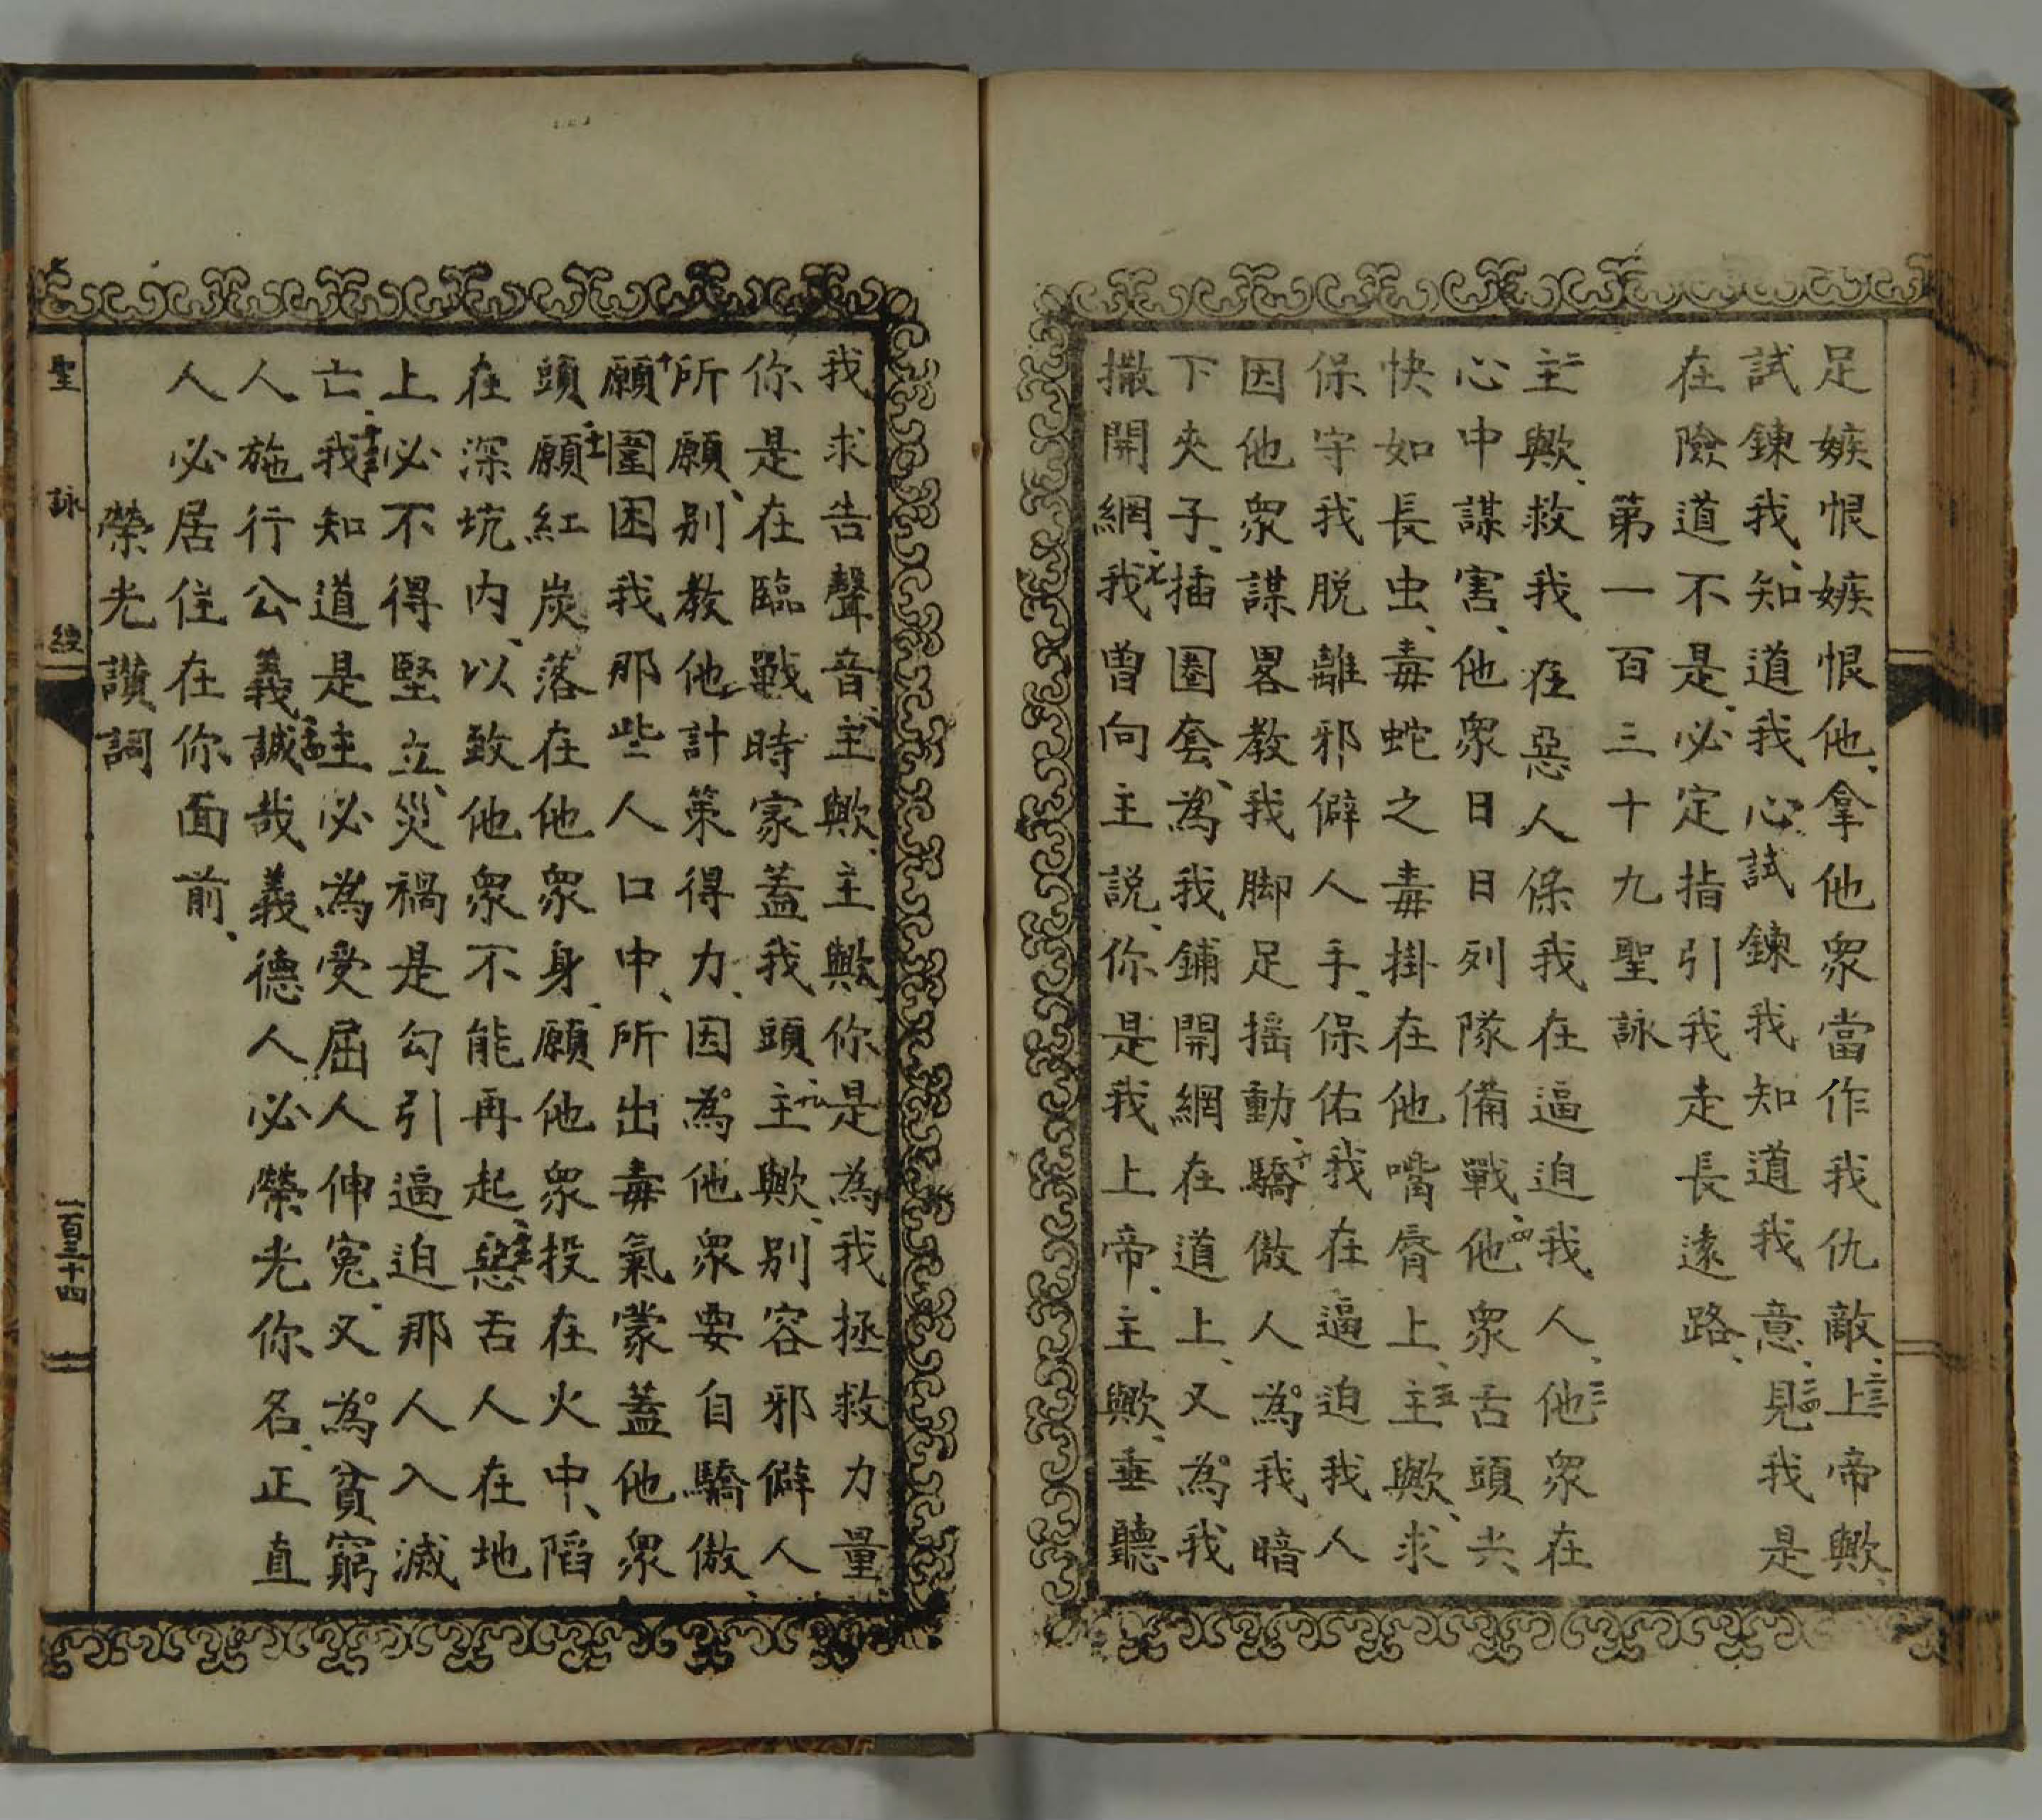 足嫉恨嫉恨他、拿他衆當作我仇敵、二三上帝歟、
試鍊我、知道我心、試鍊我知道我意、二四見我是
在險道不是、必定指引我走長遠路、
第一百三十九聖詠
二主歟、救我在惡人保我在逼迫我人、三他衆在
心中謀害、他衆日日列隊備戰、四他衆舌頭尖、
快如長虫、毒蛇之毒掛在他嘴脣上、五主歟、求
保守我脫離邪僻人手、保佑我在逼迫我人
因他衆謀畧教我脚足搖動、六驕傲人為我暗
下夾子、插圈套、為我鋪開網在道上、又為我
撒開網、七我曾向主説、你是我上帝、主歟、垂聽
我求告聲音、主歟、主歟、你是為我拯救力量、
你是在臨戰時家蓋我頭、九主歟、別容邪僻人、
所願、別教他計策得力、因為他衆要自驕傲、
十願圍困我那些人口中、所出毒氣蒙蓋他衆
頭、十一願紅炭落在他衆身、願他衆投在火中、陷
在深坑内、以致他衆不能再起、十二惡舌人在地
上必不得堅立、災禍是勾引逼迫那人入滅
亡、十三我知道是主必為受屈人伸冤、又為貧窮
人施行公義、十四誠哉義德人必榮光你名、正直
人必居住在你面前、
榮光讃詞
聖詠經
一百三十四